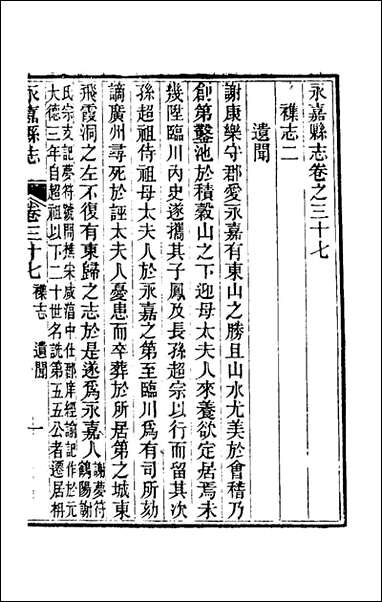 永嘉縣志卷之三十七
襍志二
遺聞
謝康樂守郡愛永嘉有東山之勝且山水尤美於會稽乃
創第鑿池於積穀山之下迎母太夫人來養欲定居焉未
幾陞臨川內史遂攜其子鳳及長孫超宗以行而留其次
孫超祖侍祖母太夫人於永嘉之第至臨川爲有司所劾
謫廣州尋死於誣太夫人憂患而卒葬於所居第之城東
飛霞洞之左不復有東歸之志於是遂爲永嘉人
謝夢符
鶴陽謝
氏宗支記夢符號開樵宋咸湻中仕郡庠經諭記作於元
大德三年自超祖以下二十世名詵第五五公者遷居枬
永嘉縣志 卷三十七 襍志 遺聞 一